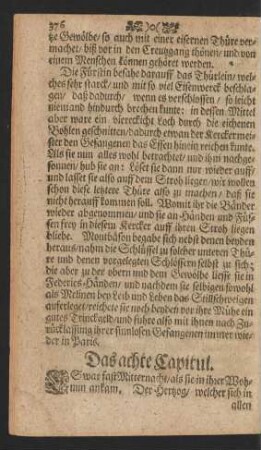 376
tze Gewölbe/ so auch mit einer eisernen Thüre ver-
machet/ biß vor in den Creutzgang thönen/ und von
einem Menschen können gehöret werden.
Die Fürstin besahe darauff das Thürlein/ wel-
ches sehr starck/ und mit so viel Eisenwerck beschla-
gen/ daß dadurch/ wenn es verschlossen/ so leicht
niemand hindurch brechen kunte: in dessen Mittel
aber ware ein viereckicht Loch durch die eichenen
Bohlen geschnitten/ dadurch etwan der Kerckermei-
ster den Gefangenen das Essen hinein reichen kunte.
Als sie nun alles wohl betrachtet/ und ihm nachge-
sonnen/ hub sie an: Löset sie dann nur wieder auff/
und lasset sie also auff dem Stroh liegen/ wir wollen
schon diese letztere Thüre also zu machen/ daß sie
nicht herauß kommen soll. Womit ihr die Bänder
wieder abgenommen/ und sie an Händen und Füs-
sen frey in diesem Kercker auff ihren Stroh liegen
bliebe. Montbason begabe sich nebst denen beyden
heraus/ nahm die Schlüssel zu solcher untern Thü-
re und denen vorgelegten Schlössern selbst zu sich;
die aber zu der obern und dem Gewölbe liesse sie in
Federics-Händen/ und nachdem sie selbigen sowohl
als Melinen bey Leib und Leben das Stillschweigen
aufferleget/ reichete sie noch beyden vor ihre Mühe ein
gutes Trinckgeld/ und fuhre also mit ihnen nach Zu-
rücklassung ihrer sinnlosen Gefangenen immer wie-
der in Paris.
Das achte Capitul.
ES war fast Mitternacht/ als sie in ihrer Woh-
nun ankam. Der Hertzog/ welcher sich in
allen